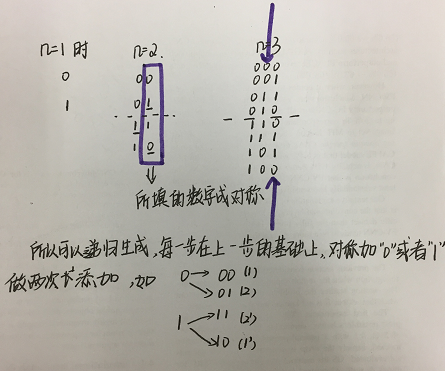 n=1 时 n=2. n=3
0 00 000
1 01 001
11 011
10 010
110
111
101
100
所填的数字成对称
所以可以递归生成,每一步在上一步的基础上,对称加"0"或者"1"
做两次添加,如 0 → 00 (1)
→ 01 (2)
1 → 11 (2')
→ 10 (1')